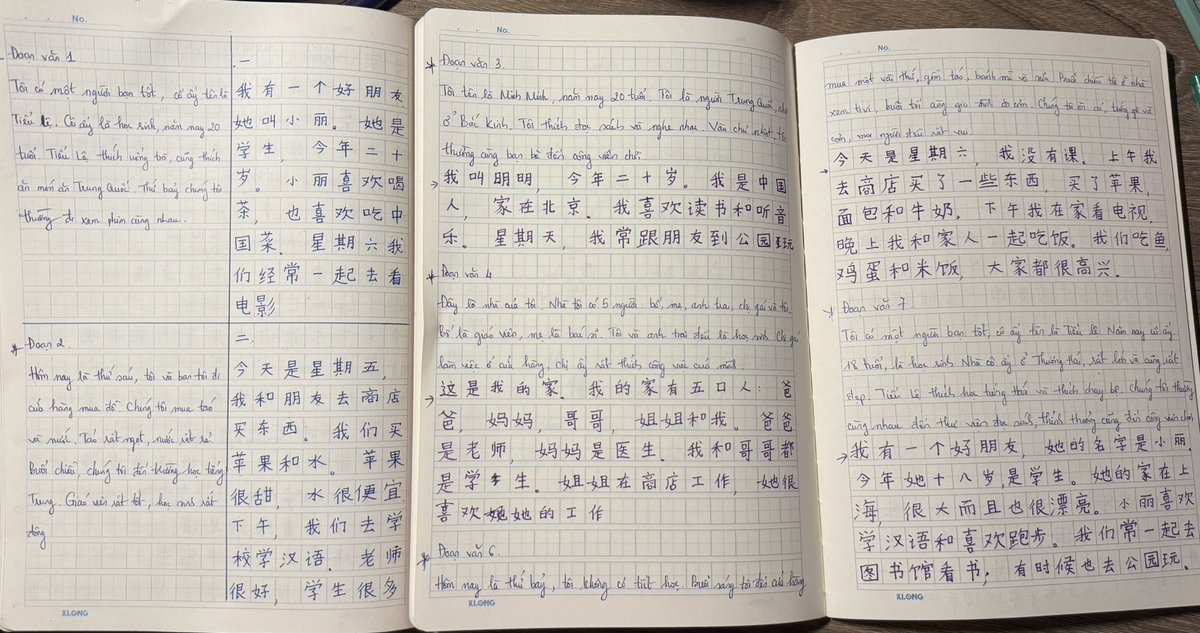 No.
Đoạn văn 1
Tôi có một người bạn tốt, cô ấy tên là
Tiểu Lệ. Cô ấy là học sinh, năm nay 20
tuổi. Tiểu Lệ thích uống trà, cũng thích
ăn món ăn Trung Quốc. Thứ bảy chúng tôi
thường đi xem phim cùng nhau.
一
我有一个好朋友
她叫小丽。她是
学生，今年二十
岁。小丽喜欢喝
茶，也喜欢吃中
国菜。星期六我
们经常一起去看
电影
Đoạn 2
Hôm nay là thứ sáu, tôi và bạn tôi đi
cửa hàng mua đồ. Chúng tôi mua táo
và nước. Táo rất ngọt, nước rất rẻ.
Buổi chiều, chúng tôi đến trường học tiếng
Trung. Giáo viên rất tốt, học sinh rất
đông
二.
今天是星期五，
我和朋友去商店
买东西。我们买
苹果和水。苹果
很甜，水很便宜
下午，我们去学
校学汉语。老师
很好，学生很多
KLONG
No.
Đoạn văn 3.
Tôi tên là Minh Minh, năm nay 20 tuổi. Tôi là người Trung Quốc,
ở Bắc Kinh. Tôi thích đọc sách và nghe nhạc. Vào chủ nhật, tôi
thường cùng bạn bè đến công viên chơi
我叫明明，今年二十岁。我是中国
人，家在北京。我喜欢读书和听音
乐。星期天，我常跟朋友到公园玩
Đoạn văn 4
Đây là nhà của tôi. Nhà tôi có 5 người bố, mẹ, anh trai, chị gái và tôi.
Bố là giáo viên, mẹ là bác sĩ. Tôi và anh trai đều là học sinh. Chị gái
làm việc ở cửa hàng, chị ấy rất thích công việc của mình
这是我的家。我的家有五口人：爸
爸，妈妈，哥哥，姐姐和我。爸爸
是老师，妈妈是医生。我和哥哥都
是学生。姐姐在商店工作，她很
喜欢她的工作
Đoạn văn 6.
Hôm nay là thứ bảy, tôi không có tiết học. Buổi sáng tôi đến cửa hàng
KLONG
No.
mua một vài thứ, gồm táo, bánh mì và sữa. Buổi chiều tôi ở nhà
xem tivi, buổi tối cùng gia đình ăn cơm. Chúng tôi ăn cá, trứng gà và
cơm, mọi người đều rất vui.
今天是星期六，我没有课。上午我
去商店买了一些东西，买了苹果，
面包和牛奶。下午我在家看电视，
晚上我和家人一起吃饭。我们吃鱼，
鸡蛋和米饭，大家都很高兴.
Đoạn văn 7.
Tôi có một người bạn tốt, cô ấy tên là Tiểu Lệ. Năm nay cô ấy
18 tuổi, là học sinh. Nhà cô ấy ở Thượng Hải, rất lớn và cũng rất
đẹp. Tiểu Lệ thích học tiếng Hán và thích chạy bộ. Chúng tôi thường
cùng nhau đến thư viện đọc sách, thỉnh thoảng cũng đến công viên chơi
我有一个好朋友，她的名字是小丽.
今年她十八岁,是学生。她的家在上
海，很大而且也很漂亮。小丽喜欢
学汉语和喜欢跑步。我们常一起去
图书馆看书，有时候也去公园玩.
KLONG